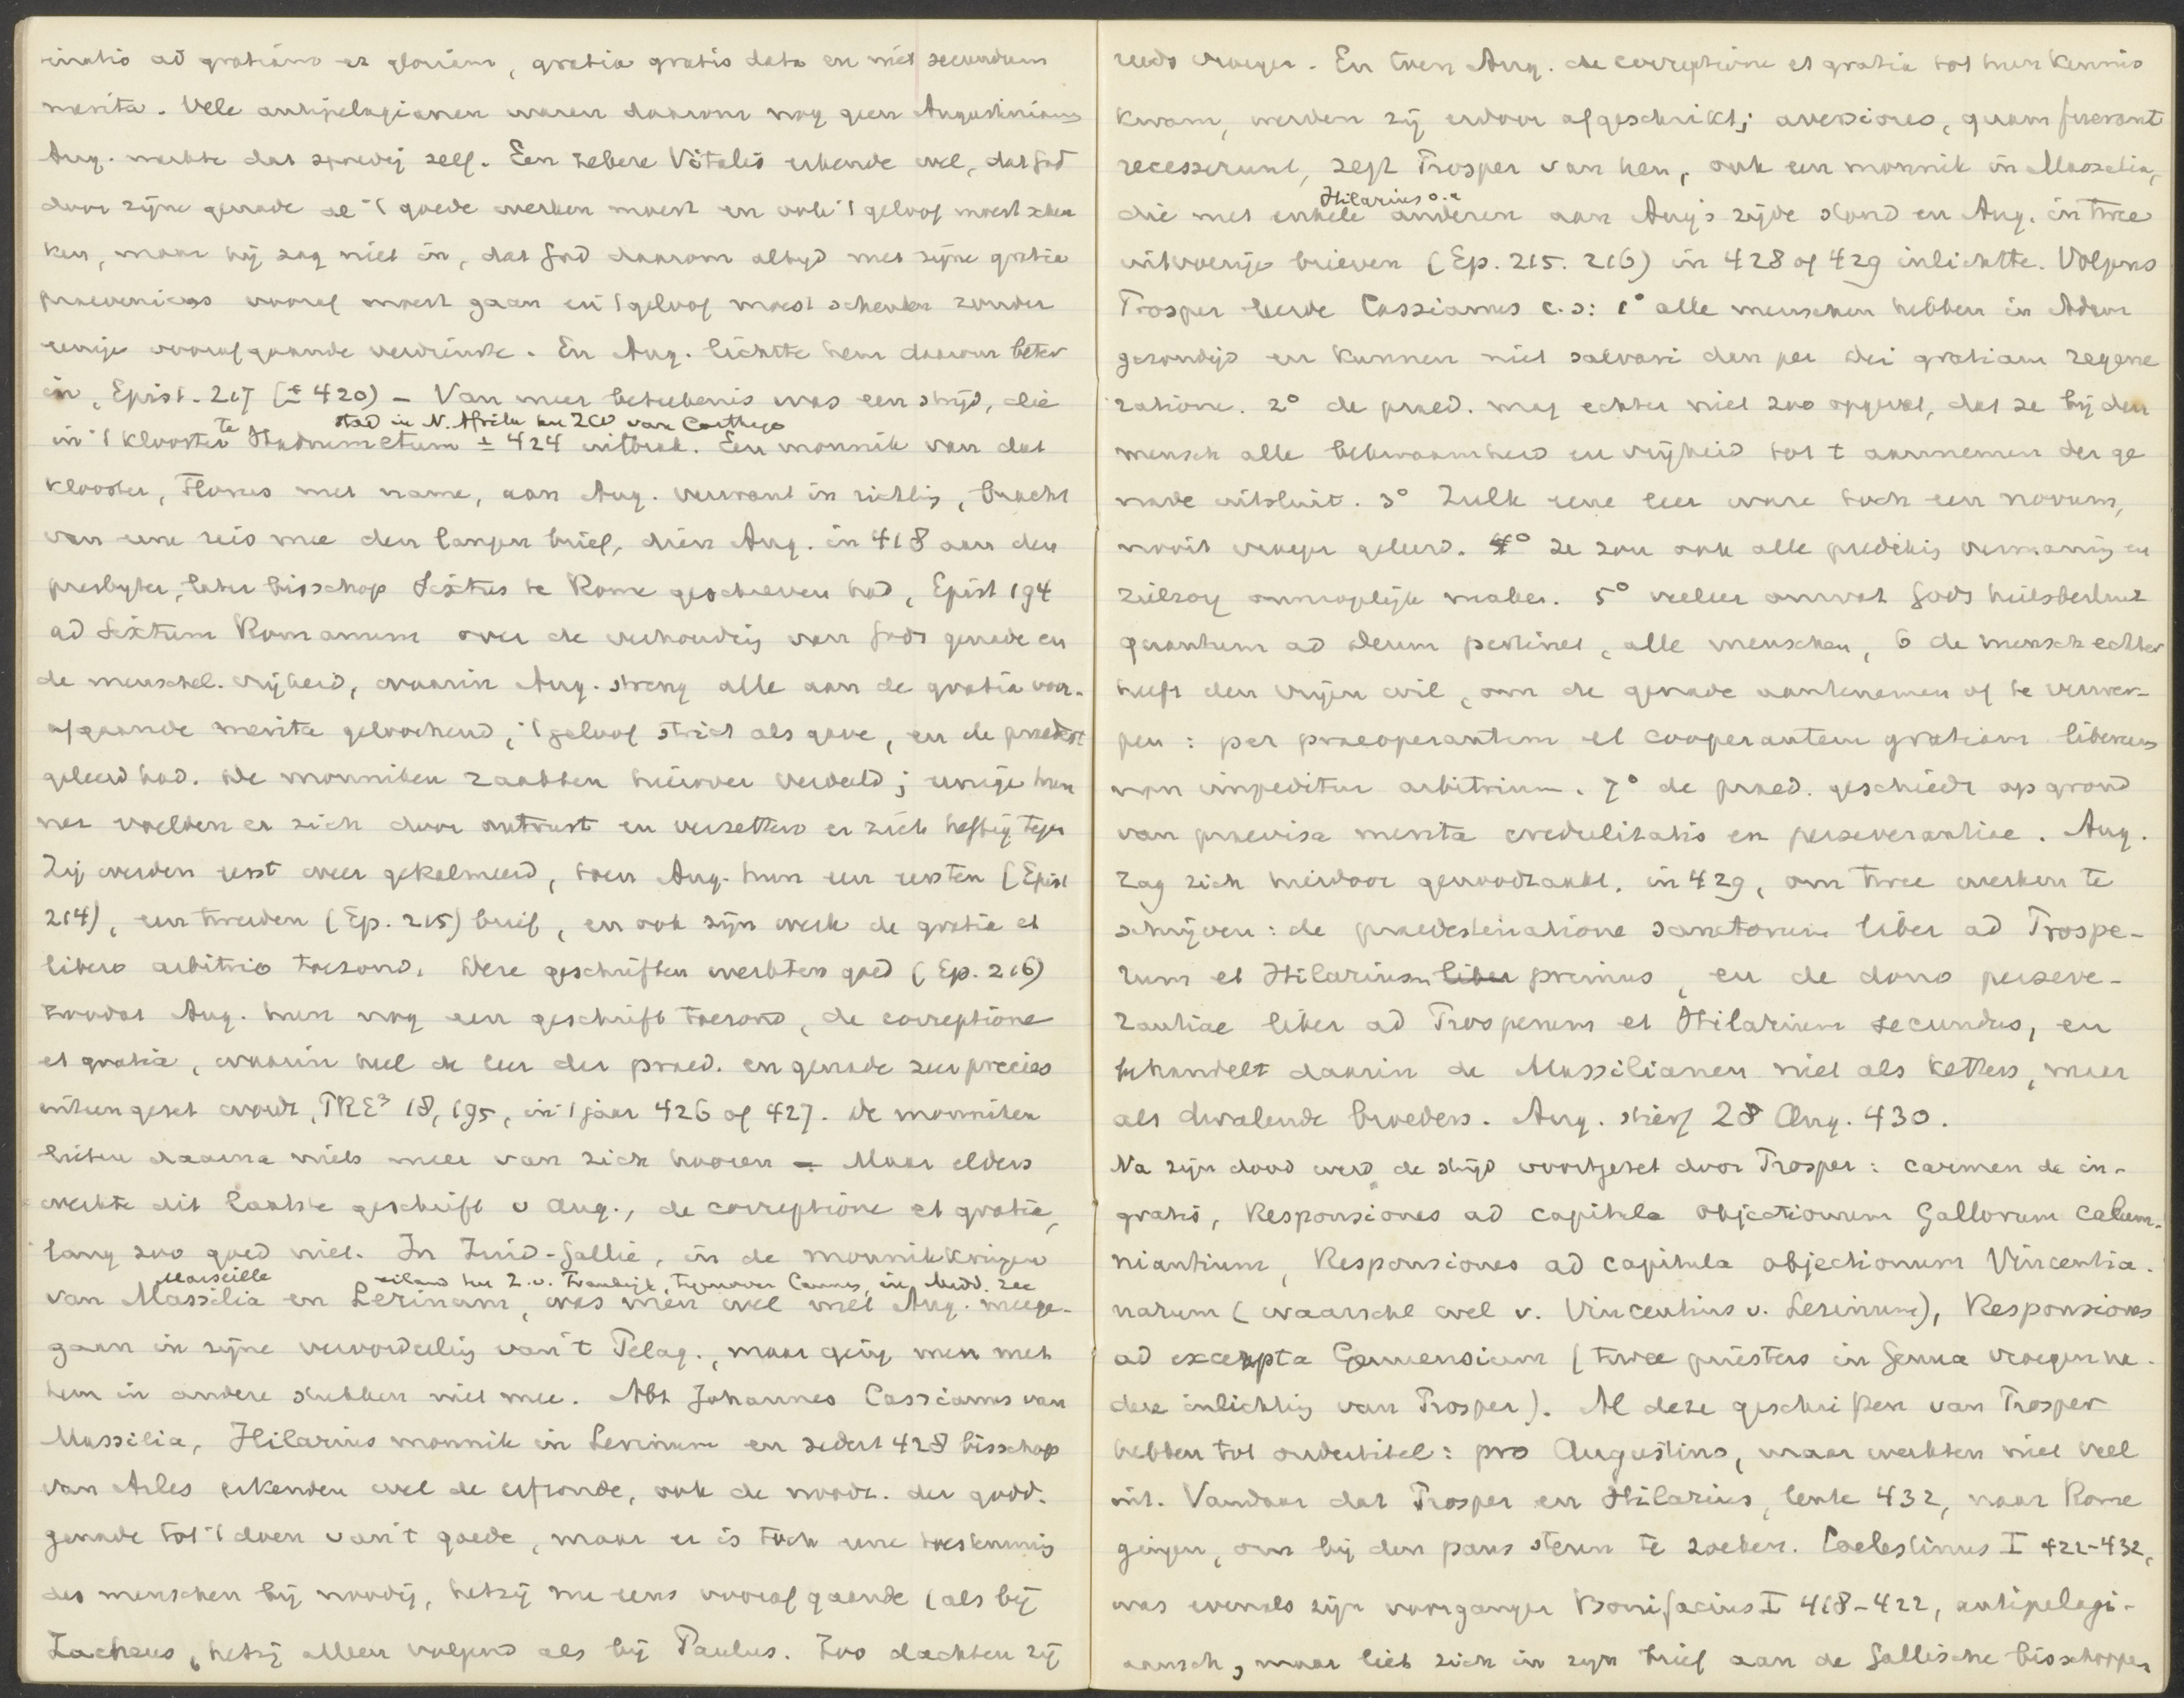 inatio ad gratiam et gloriam, gratia gratis data en niet secundum
merita. Vele antipelagianen waren daarom nog geen Augustinianen
Aug. merkte dat spoedig zelf. Een zekere Vitalis erkende wel, dat God
door zijne genade de 't goede werken moest en ook 't geloof moest schen
ken, maar hij zag niet in, dat God daarom altijd met zijne gratia
praeveniens vooraf moest gaan en 't geloof moest schenken zonder
eenige voorafgaande verdienste. En Aug. lichtte hem daarom beter
in, Epist. 217 (± 420) – Van meer beteekenis was een strijd, die
stad in N. Afrika ten ZO van Carthago
in 't klooster te Hadrumetum ± 424 uitbrak. Een monnik van dat
klooster, Florus met name, aan Aug. verwant in richting, bracht
van eene reis mee den langen brief, dien Aug. in 418 aan den
presbyter, later bisschop Sixtus te Rome geschreven had, Epist 194
ad Sixtum Romanum over de verhouding van Gods genade en
de menschel. vrijheid, waarin Aug. streng alle aan de gratia voor-
afgaande merita geloochend, 't geloof strict als gave, en de praedest
geleerd had. De monniken raakten hierover verdeeld; eenige hun
ner voelden er zich door ontrust en verzetten er zich heftig tegen
Zij werden eerst weer gekalmeerd, toen Aug. hun een eersten (Epist
214), een tweeden (Ep. 215) brief, en ook zijn werk de gratia et
libero arbitrio toezond. Deze geschriften werkten goed (Ep. 216)
zoodat Aug. hun nog een geschrift toezond, de correptione
et gratia, waarin heel de leer der praed. en genade zeer precies
uiteengezet wordt, PRE³ 18, 195, in 't jaar 426 of 427. De monniken
lieten daarna niets meer van zich hooren – Maar elders
werkte dit laatste geschrift v Aug., de correptione et gratia,
lang zoo goed niet. In Zuid-Gallië, in de monnikkringen
Marseille eiland ten Z. v. Frankrijk, tegenover Cannes, in Midd. zee
van Massilia en Lerinum, was men wel met Aug. meege-
gaan in zijne veroordeeling van 't Pelag., maar ging men met
hem in andere stukken niet mee. Abt Johannes Cassianus van
Massilia, Hilarius monnik in Lerinum en sedert 428 bisschop
van Arles erkenden wel de erfzonde, ook de noodz. der godd.
genade tot 't doen van 't goede, maar er is toch eene toestemming
des menschen bij noodig, hetzij me eens voorafgaande (als bij
Zacheus, hetzij alleen volgend als bij Paulus. Zoo dachten zij
reeds vroeger. En toen Aug. de correptione et gratia tot hun kennis
kwam, werden zij erdoor afgeschrikt; aversiores, quam fuerant
recesserunt, zegt Prosper van hen, ook een monnik in Massilia,
Hilarius o.a.
die met enkele anderen aan Aug's zijde stond en Aug. in twee
uitvoerige brieven (Ep. 215. 216) in 428 of 429 inlichtte. Volgens
Prosper leerde Cassianus c.s: 1° alle menschen hebben in Adam
gezondigd en kunnen niet salvari dan per Dei gratiam regene
ratione. 2° de praed. mag echter niet zoo opgevat, dat ze bij den
mensch alle bekwaamheid en vrijheid tot t aannemen der ge
nade uitsluit. 3° Zulk eene leer ware toch een novum,
nooit vroeger geleerd. 4° Ze zou ook alle prediking vermaning en
zielzorg onmogelijk maken. 5° veeleer omvat Gods heilsbesluit
quantum ad Deum pertinet, alle menschen, 6 de mensch echter
heeft den vrijen wil, om de genade aantenemen of te verwer-
pen: per praeoperantem et cooperantem gratiam liberum
non impeditur arbitrium. 7° de praed. geschiedt op grond
van praevisa merita credulitatis en perseverantiae. Aug.
zag zich hierdoor genoodzaakt, in 429, om twee werken te
schrijven: de praedestinatione sanctorum liber ad Prospe-
rum et Hilarium liber primus, en de dono perseve-
rantiae liber ad Prosperum et Hilarium secundus, en
behandelt daarin de Massilianen niet als ketters, maar
als dwalende broeders. Aug. stierf 28 Aug. 430.
Na zijn dood werd de strijd voortgezet door Prosper: carmen de in-
gratis, Responsiones ad capitula objectionum Gallorum calum-
niantium, Responsiones ad capitula objectionum Vincentia-
narum (waarschl wel v. Vincentius v. Lerinum), Responsiones
ad excerpta Genuensium (twee priesters in Genua vroegen na-
dere inlichting van Prosper). Al deze geschriften van Prosper
hebben tot ondertitel: pro Augustino, maar werkten niet veel
uit. Vandaar dat Prosper en Hilarius, lente 432, naar Rome
gingen, om bij den paus steun te zoeken. Coelestinus I 422-432,
was evenals zijn voorganger Bonifacius I 418-422, antipelagi-
aansch, maar liet zich in zijn brief aan de Gallische bisschoppen